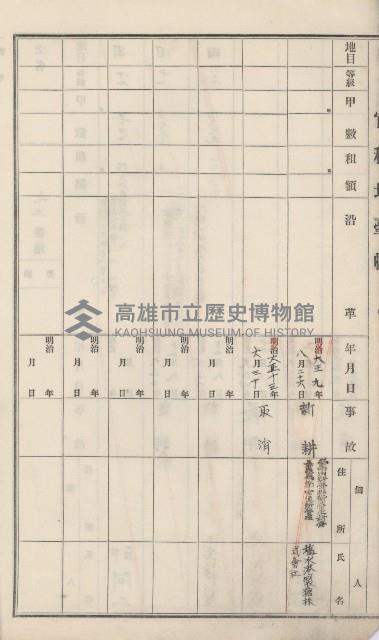 地目
等級
甲數
租額
沿革
年月日
事故
住所
氏名
佃人
明治 大正 九年
八月二十六日
新耕
鹽水港製糖株
式會社
明治 大正十三年
六月三十日
取消
明治 年
月 日
明治 年
月 日
明治 年
月 日
明治 年
月 日
明治 年
月 日
高雄市立歷史博物館
KAOHSIUNG MUSEUM OF HISTORY